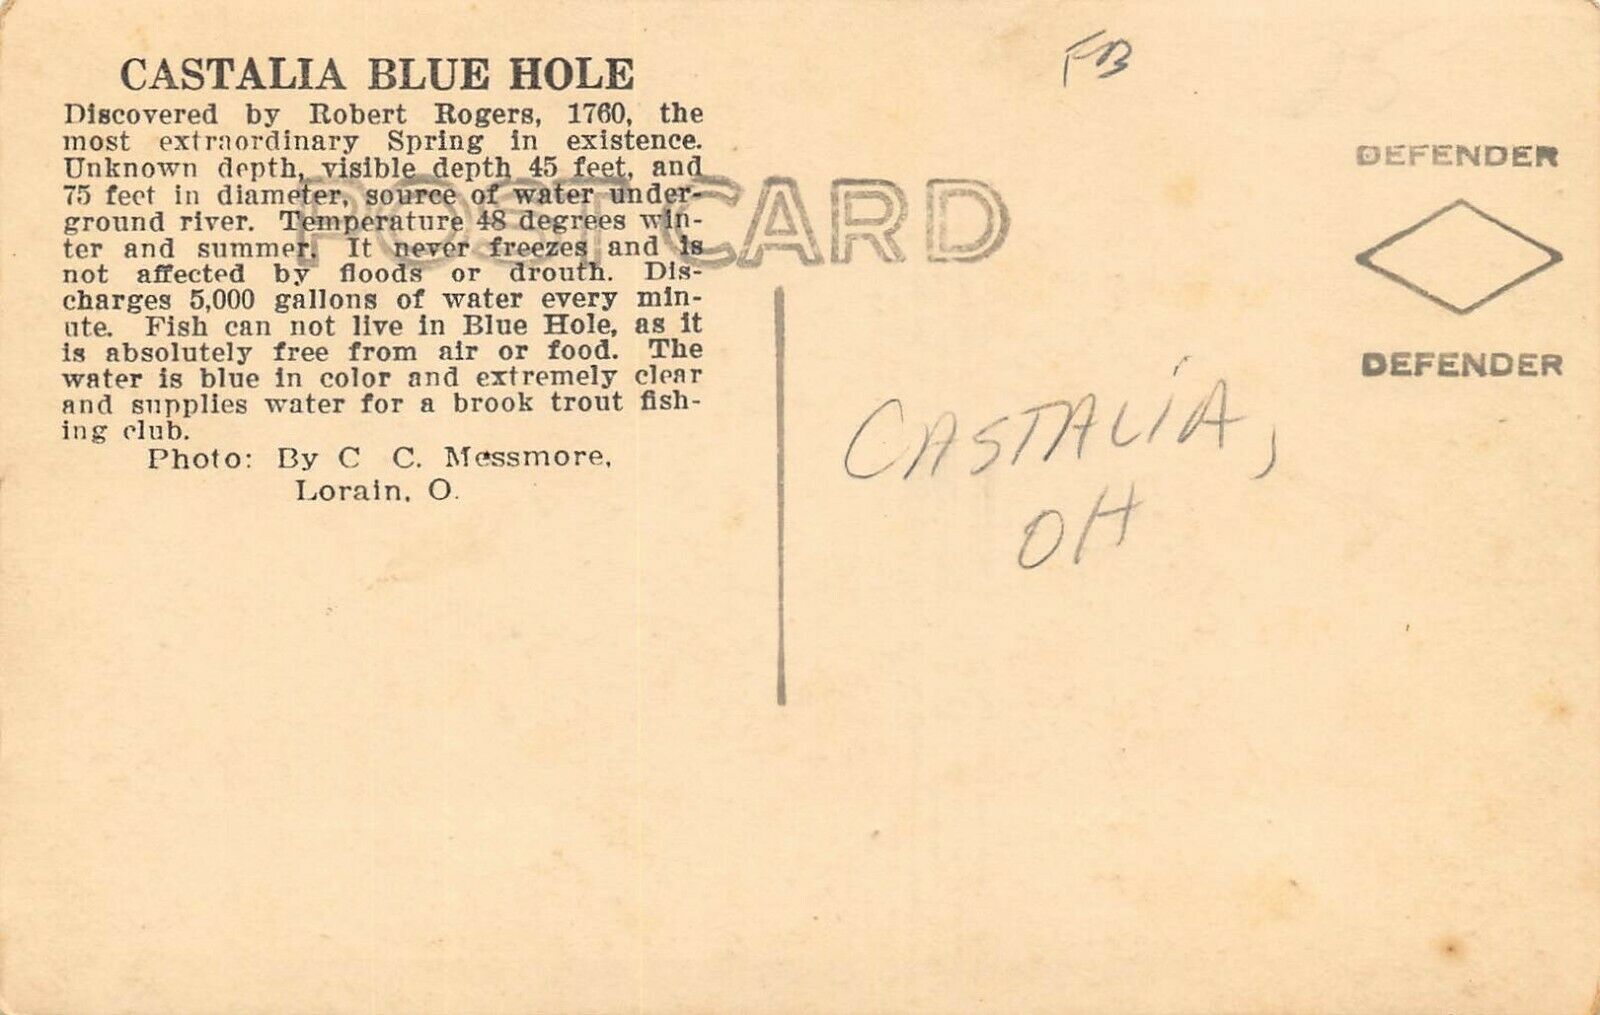 CASTALIA BLUE HOLE
Discovered by Robert Rogers, 1760, the
most extraordinary Spring in existence.
Unknown depth, visible depth 45 feet, and
75 feet in diameter, source of water under-
ground river. Temperature 48 degrees win-
ter and summer. It never freezes and is
not affected by floods or drouth. Dis-
charges 5,000 gallons of water every min-
ute. Fish can not live in Blue Hole, as it
is absolutely free from air or food. The
water is blue in color and extremely clear
and supplies water for a brook trout fish-
ing club.
Photo: By C C. Messmore,
Lorain, O.
POST CARD
FB
DEFENDER
DEFENDER
CASTALIA,
OH